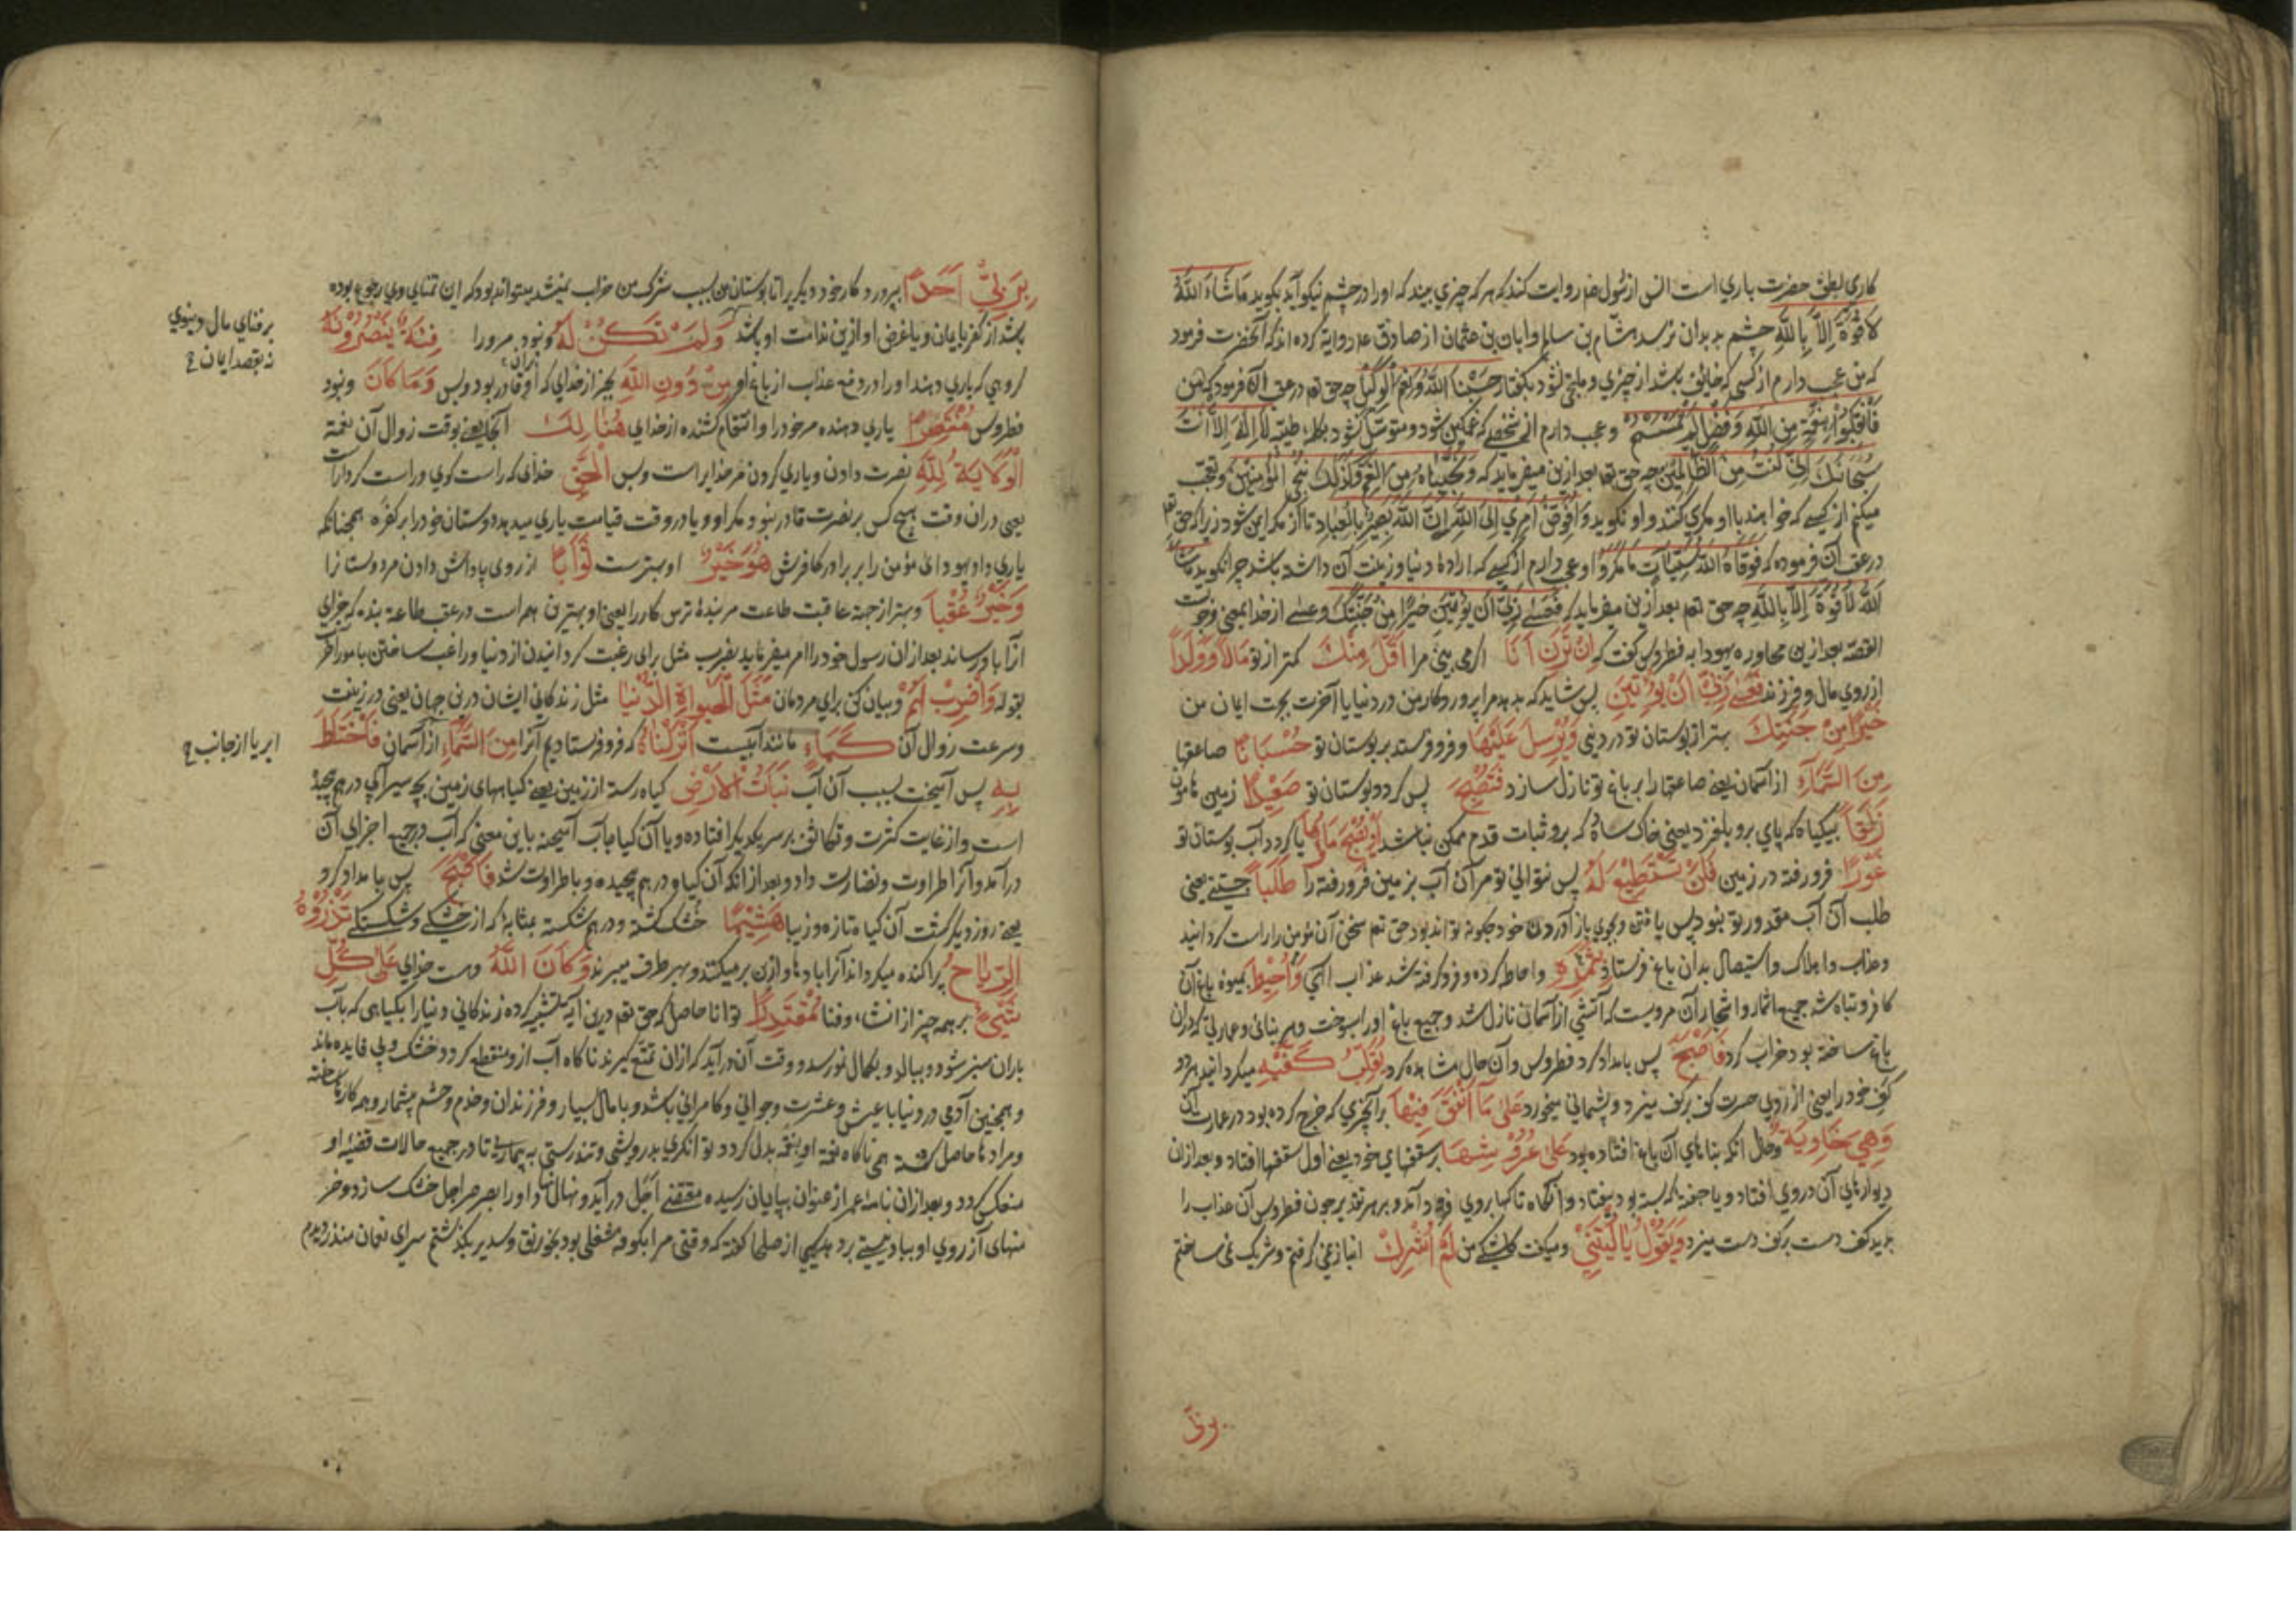 کاری بلطف حضرت باری است انس از رسول خدا روایت کند که هر که چیزی بیند که او را در چشم نیکو آید بکوید مَا شَاءَ اللّٰهُ
لَا قُوَّةَ اِلَّا بِاللّٰهِ چشم بد بدان نرسد هشام بن سالم وابان بن عثمان از صادق علـ روایة کرده اند که آنحضرت فرمود
که من عجب دارم از کسی که خایف باشد از چیزی و ملتجی نشود بکفتار حَسْبُنَا اللّٰهُ وَنِعْمَ الْوَکِیْل چه حق تع در عقب آن فرمود که
فَانْقَلَبُوا بِنِعْمَةٍ مِنَ اللّٰهِ وَفَضْلٍ لَمْ یَمْسَسْهُمْ و عجب دارم از شخصی که غمکین شود و متوسل نشود بکلمه طیبه لَا اِلٰهَ اِلَّا اَنْتَ
سُبْحَانَكَ اِنِّی کُنْتُ مِنَ الظَّالِمِیْنَ چه حق تعا بعد ازین میفرماید که وَنَجَّیْنَاهُ مِنَ الْغَمِّ وَکَذٰلِكَ نُنْجِی الْمُؤْمِنِیْنَ وتعجب
میکنم از کسی که خواهند با او مکری کنند و او نکوید وَاُفَوِّضُ اَمْرِی اِلَی اللّٰهِ اِنَّ اللّٰهَ بَصِیْرٌ بِالْعِبَادِ تا از مکر ایمن شود زیرا که حق تع
در عقب آن فرموده که فَوَقَاهُ اللّٰهُ سَیِّئَاتِ مَا مَکَرُوا و عجب دارم از کسی که ارادهٔ دنیا و زینت آن داشته باشد چرا نکوید مَا شَاءَ
اللّٰهُ لَا قُوَّةَ اِلَّا بِاللّٰهِ چه حق تعم بعد ازین میفرماید که فَعَسٰی رَبِّی اَنْ یُؤْتِیَنِ خَیْرًا مِنْ جَنَّتِكَ وعسی از خدا بمعنی وجوبست
القصه بعد ازین محاوره یهودا به فطروس کفت که اِنْ تَرَنِ اَنَا اکر می بینی مرا اَقَلَّ مِنْكَ کمتر از تو مَالًا وَوَلَدًا
از روی مال و فرزند فَعَسٰی رَبِّی اَنْ یُؤْتِیَنِ پس شاید که بدهد مرا پروردکار من در دنیا یا آخرت بجهت ایمان من
خَیْرًا مِنْ جَنَّتِكَ بهتر از بوستان تو در دینی وَیُرْسِلَ عَلَیْهَا و فرو فرستد بر بوستان تو حُسْبَانًا صاعقها
مِنَ السَّمَاءِ از آسمان یعنی صاعقها را بر باغ تو نازل سازد فَتُصْبِحَ پس کردد بوستان تو صَعِیْدًا زمین هامون
زَلَقًا بیکیاه که پای برو بلغزد یعنی خاک ساده که برو ثبات قدم ممکن نباشد اَوْ یُصْبِحَ مَاؤُهَا یا کردد آب بوستان تو
غَوْرًا فرو رفته در زمین فَلَنْ تَسْتَطِیْعَ لَهُ پس نتوانی تو مر آن آب بزمین فرو رفته را طَلَبًا جستنی یعنی
طلب آن آب مقدور تو نبود پس یافتن و بجوی باز آوردن خود چکونه تواند بود حق تعم سخن آن مؤمن را راست کردانید
وعذاب و اهلاک و استیصال بدان باغ فرستاد وَاُحِیْطَ بِثَمَرِهِ و احاطه کرده و فرو کرفته شد عذاب الهی بمیوه باغ آن
کافر و تباه شد جمیع اثمار و اشجار آن مرویست که آتشی از آسمان نازل شد و جمیع باغ او را بسوخت و هر بنائی و عمارتی که در آن
باغ ساخته بود خراب کرد فَاَصْبَحَ پس بامداد کرد فطروس و آن حال مشاهده کرد یُقَلِّبُ کَفَّیْهِ میکردانید هر دو
کف خود را یعنی از روی حسرت کف بر کف میزد و پشیمانی میخورد عَلٰی مَا اَنْفَقَ فِیْهَا بر آنچیزی که خرج کرده بود در عمارت آن
وَهِیَ خَاوِیَةٌ و حال آنکه بناهای آن باغ افتاده بود عَلٰی عُرُوْشِهَا بر سقفهای خود یعنی اول سقفها افتاد و بعد از آن
دیوارهای آن در روی افتاد و یا جفته که بسته بود بیفتاد و آنکاه تاکها بروی فرود آمد و بر هر تقدیر چون فطروس آن عذاب را
بدید کف دست بر کف دست میزد وَیَقُوْلُ یَا لَیْتَنِیْ و میکفت کاشکی من لَمْ اُشْرِكْ انباز نمی کرفتم و شریک نمی ساختم
بربی
بِرَبِّیْ اَحَدًا بپروردکار خود دیکری را تا بوستان من بسبب شرک من خراب نمیشد میتواند بود که این تمنای وی رجوع بوده
باشد از کفر بایمان و یا غرض او ازین ندامت او باشد وَلَمْ تَکُنْ لَهُ و نبود مر ورا فِئَةٌ یَنْصُرُوْنَهُ
کروهی که یاری دهند او را در دفع عذاب از باغ او مِنْ دُوْنِ اللّٰهِ بجز از خدای که او قادر بود و بس وَمَا کَانَ و نبود
بران
فطروس مُنْتَصِرًا یاری دهنده مر خود را و انتقام کشنده از خدای هُنَالِكَ آنجا یعنی بوقت زوال آن نعمة
الْوَلَایَةُ لِلّٰهِ نصرت دادن و یاری کردن مر خدایراست و بس الْحَقِّ خدای که راست کوی و راست کردارست
یعنی در آن وقت هیچ کس بر نصرت قادر نبود مکر او و یا در وقت قیامت یاری میدهد دوستان خود را بر کفره همچنانکه
یاری داد یهودای مؤمن را بر برادر کافرش هُوَ خَیْرٌ او بهترست ثَوَابًا از روی پاداش دادن مر دوستانرا
وَخَیْرٌ عُقْبًا و بهتر از جهة عاقبت طاعت مر بندهٔ ترس کار را یعنی او بهترین هم است در عقب طاعة بنده که جزای
آنرا باو رساند بعد از آن رسول خود را امر میفرماید بضرب مثل برای رغبت کردانیدن از دنیا و راغب ساختن بامور آخرت
بقوله وَاضْرِبْ لَهُمْ و بیان کن برای مردمان مَثَلَ الْحَیٰوةِ الدُّنْیَا مثل زندکانی ایشان درین جهان یعنی در زینت
و سرعت زوال آن کَمَاءٍ مانند آبیست اَنْزَلْنَاهُ که فرو فرستادیم آنرا مِنَ السَّمَاءِ از آسمان فَاخْتَلَطَ
بِهِ پس آمیخت بسبب آن آب نَبَاتُ الْاَرْضِ کیاه رسته از زمین یعنی کیاههای زمین بجهة سیرابی درهم پیچیده
است و از غایت کثرت و تکاثف بر سر یکدیکر افتاده و یا آن کیاه بآب آمیخته باین معنی که آب در جمیع اجزای آن
درآمد و آنرا طراوت و نضارت داد و بعد از آنکه آن کیاه درهم پیچیده و با طراوت شد فَاَصْبَحَ پس بامداد کرد
یعنی روز دیکر کشت آن کیاه تازه و زیبا هَشِیْمًا خشک کشته و درهم شکسته بمثابهٔ که از خشکی و شکستکی تَذْرُوْهُ
الرِّیَاحُ پراکنده میکرداند آنرا بادها و از بن بر میکند و بهر طرف میبرند وَکَانَ اللّٰهُ و هست خدای عَلٰی کُلِّ
شَیْءٍ بر همه چیز از انشاء و فنا مُقْتَدِرًا توانا حاصل که حق تعم درین آیه تشبیه کرده زندکانی دنیا را بکیاهی که بآب
باران سبز شود و ببالد و بکمال نورسد و وقت آن درآید که از آن تمتع کیرند ناکاه آب ازو منقطع کردد و خشک و بی فایده ماند
و همچنین آدمی در دنیا با عیش و عشرت و جوانی و کامرانی باشد و با مال بسیار و فرزندان و خدم و حشم بیشمار و همه کارها ساخته
و مرادها حاصل کشته همی ناکاه نعمة او بنقمه بدل کردد توانکری بدرویشی و تندرستی به بیماری تا در جمیع حالات قضیهٔ او
منعکس کردد و بعد از آن نامهٔ عمر از عنوان بپایان رسیده مقتضی اجل درآید و نهال او را بصرصر اجل خشک سازد و خرـ
منهای آرزوی او بباد نیستی برد یکی از صلحا کفته که وقتی مرا بکوفه شغلی بود بخورنق و سدیر بکذشتم سرای نعمان منذر دیدم
بر فنای مال دنیوی
نه بقصد ایمان
ابر یا از جانب